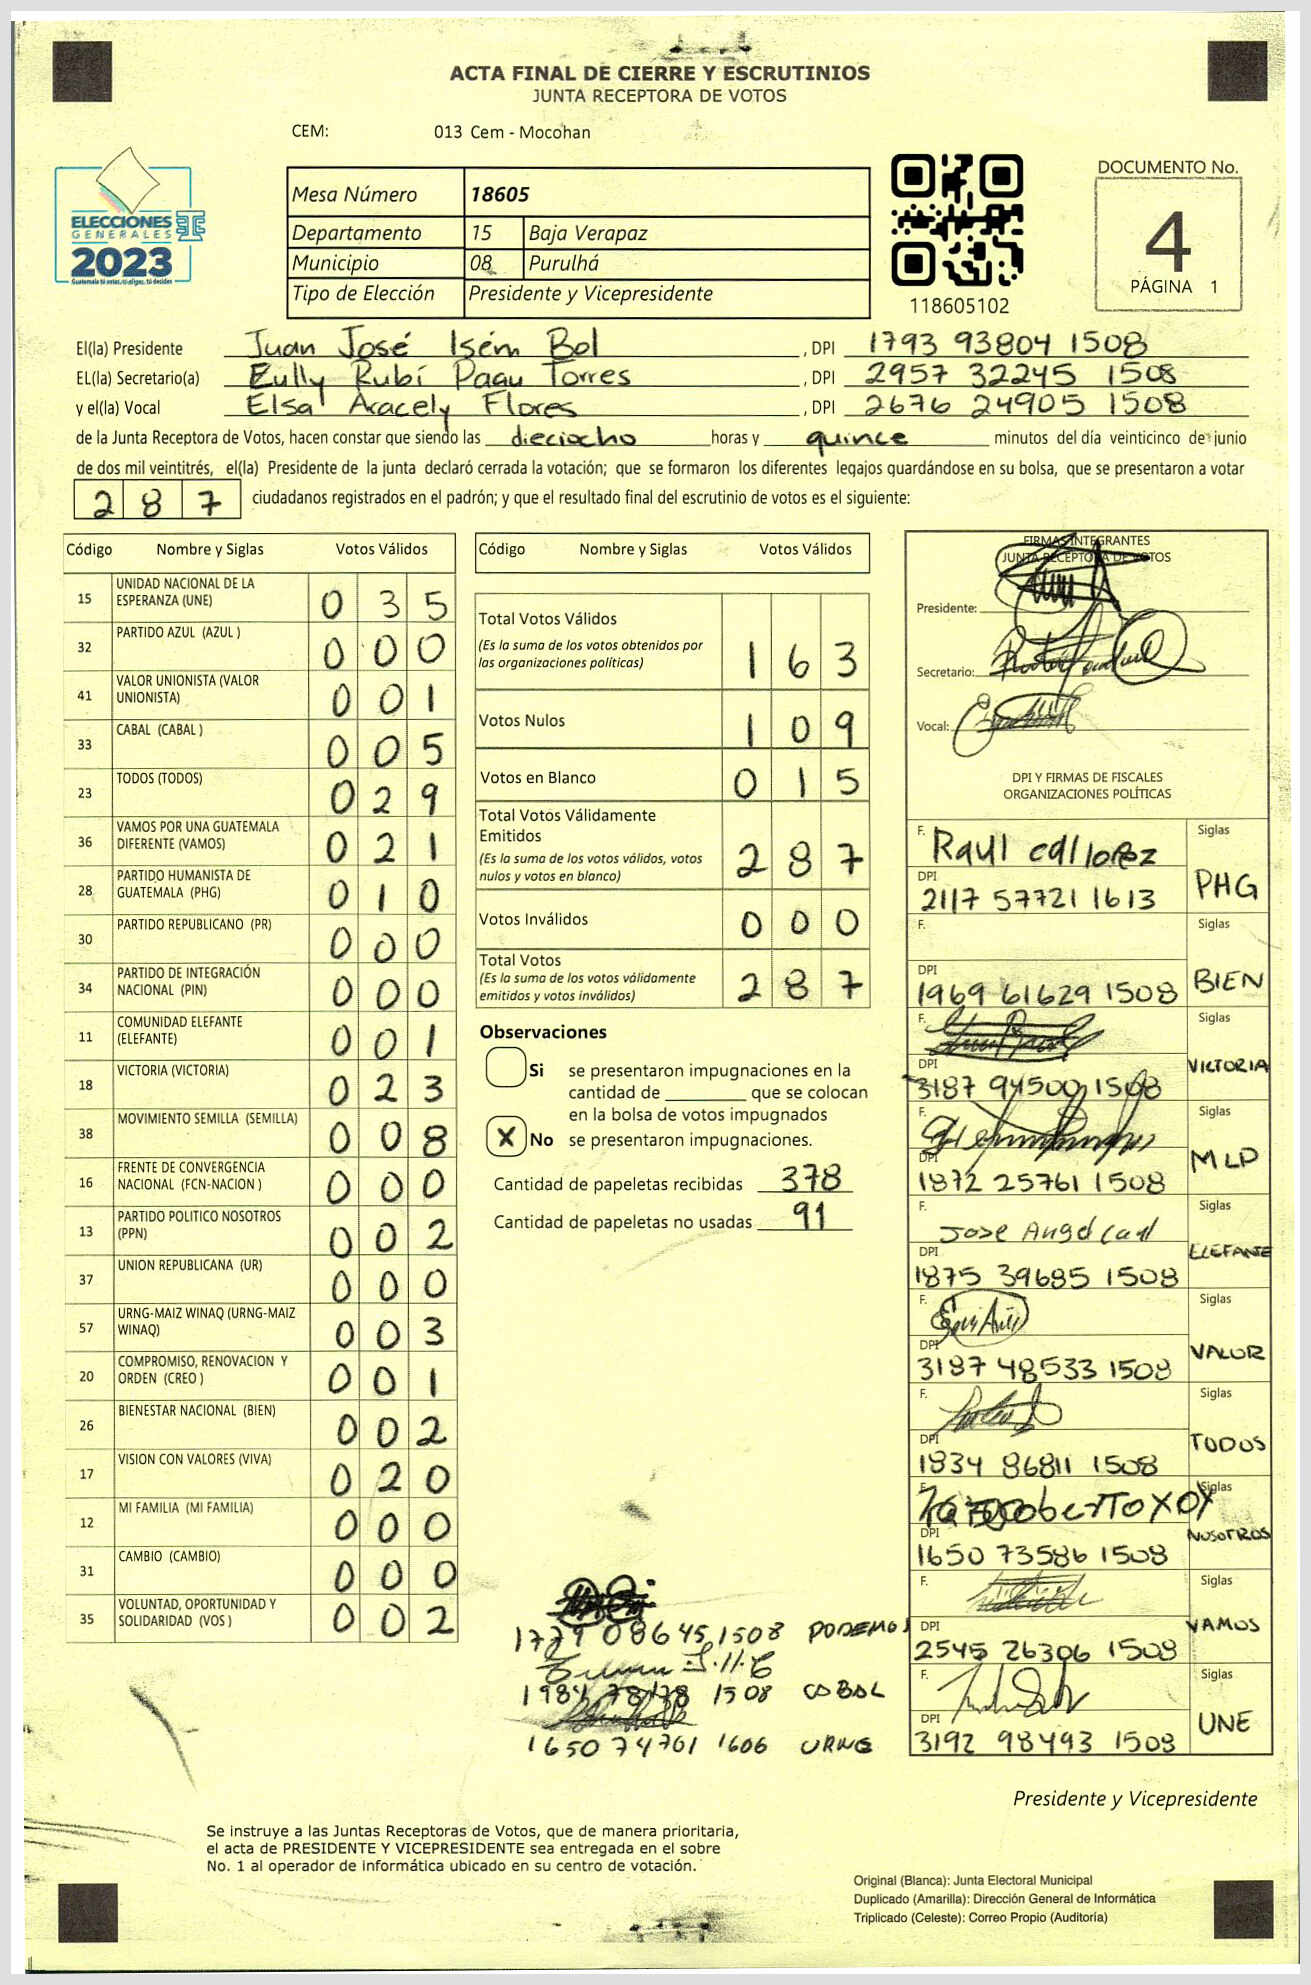 ACTA FINAL DE CIERRE Y ESCRUTINIOS
JUNTA RECEPTORA DE VOTOS
CEM: 013 Cem - Mocohan
ELECCIONES
GENERALES
2023
Guatemala tú votas, tú eliges, tú decides
Mesa Número 18605
Departamento 15 Baja Verapaz
Municipio 08 Purulhá
Tipo de Elección Presidente y Vicepresidente
118605102
DOCUMENTO No.
4
PÁGINA 1
El(la) Presidente Juan José Isém Bol , DPI 1793 93804 1508
EL(la) Secretario(a) Eully Rubí Paau Torres , DPI 2957 32245 1508
y el(la) Vocal Elsa Aracely Flores , DPI 2676 24905 1508
de la Junta Receptora de Votos, hacen constar que siendo las dieciocho horas y quince minutos del día veinticinco de junio
de dos mil veintitrés, el(la) Presidente de la junta declaró cerrada la votación; que se formaron los diferentes legajos quardándose en su bolsa, que se presentaron a votar
287 ciudadanos registrados en el padrón; y que el resultado final del escrutinio de votos es el siguiente:
Código Nombre y Siglas Votos Válidos
15 UNIDAD NACIONAL DE LA ESPERANZA (UNE) 0 3 5
32 PARTIDO AZUL (AZUL ) 0 0 0
41 VALOR UNIONISTA (VALOR UNIONISTA) 0 0 1
33 CABAL (CABAL ) 0 0 5
23 TODOS (TODOS) 0 2 9
36 VAMOS POR UNA GUATEMALA DIFERENTE (VAMOS) 0 2 1
28 PARTIDO HUMANISTA DE GUATEMALA (PHG) 0 1 0
30 PARTIDO REPUBLICANO (PR) 0 0 0
34 PARTIDO DE INTEGRACIÓN NACIONAL (PIN) 0 0 0
11 COMUNIDAD ELEFANTE (ELEFANTE) 0 0 1
18 VICTORIA (VICTORIA) 0 2 3
38 MOVIMIENTO SEMILLA (SEMILLA) 0 0 8
16 FRENTE DE CONVERGENCIA NACIONAL (FCN-NACION ) 0 0 0
13 PARTIDO POLITICO NOSOTROS (PPN) 0 0 2
37 UNION REPUBLICANA (UR) 0 0 0
57 URNG-MAIZ WINAQ (URNG-MAIZ WINAQ) 0 0 3
20 COMPROMISO, RENOVACION Y ORDEN (CREO ) 0 0 1
26 BIENESTAR NACIONAL (BIEN) 0 0 2
17 VISION CON VALORES (VIVA) 0 2 0
12 MI FAMILIA (MI FAMILIA) 0 0 0
31 CAMBIO (CAMBIO) 0 0 0
35 VOLUNTAD, OPORTUNIDAD Y SOLIDARIDAD (VOS ) 0 0 2
Código Nombre y Siglas Votos Válidos
Total Votos Válidos
(Es la suma de los votos obtenidos por
las organizaciones políticas) 1 6 3
Votos Nulos 1 0 9
Votos en Blanco 0 1 5
Total Votos Válidamente
Emitidos
(Es la suma de los votos válidos, votos
nulos y votos en blanco) 2 8 7
Votos Inválidos 0 0 0
Total Votos
(Es la suma de los votos válidamente
emitidos y votos inválidos) 2 8 7
Observaciones
Si se presentaron impugnaciones en la
cantidad de ________ que se colocan
en la bolsa de votos impugnados
X No se presentaron impugnaciones.
Cantidad de papeletas recibidas 378
Cantidad de papeletas no usadas 91
1779 08645 1508 PODEMOS
1984 78178 1508 CABAL
1650 74761 1606 URNG
FIRMAS INTEGRANTES
JUNTA RECEPTORA DE VOTOS
Presidente:
Secretario:
Vocal:
DPI Y FIRMAS DE FISCALES
ORGANIZACIONES POLÍTICAS
F. Raul Siglas
DPI 2117 57721 1613 PHG
F. Siglas
DPI 1969 61629 1508 BIEN
F. Siglas
DPI 3187 94500 1508 VICTORIA
F. Siglas
DPI 1872 25761 1508 MLP
F. Jose Angel Siglas
DPI 1875 39685 1508 ELEFANTE
F. Siglas
DPI 3187 48533 1508 VALOR
F. Siglas
DPI 1834 86811 1508 TODOS
F. Siglas
DPI 1650 73586 1508 NOSOTROS
F. Siglas
DPI 2545 26306 1508 VAMOS
F. Siglas
DPI 3192 98493 1508 UNE
Presidente y Vicepresidente
Se instruye a las Juntas Receptoras de Votos, que de manera prioritaria,
el acta de PRESIDENTE Y VICEPRESIDENTE sea entregada en el sobre
No. 1 al operador de informática ubicado en su centro de votación.
Original (Blanca): Junta Electoral Municipal
Duplicado (Amarilla): Dirección General de Informática
Triplicado (Celeste): Correo Propio (Auditoría)